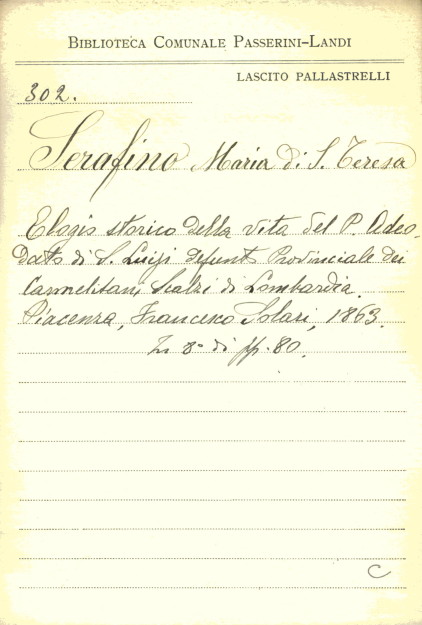 BIBLIOTECA COMUNALE PASSERINI-LANDI
LASCITO PALLASTRELLI
302.
Serafino Maria di S. Teresa
Elogio storico della vita del P. Adeo-
dato di S. Luigi defunto Provinciale dei
Carmelitani Scalzi di Lombardia.
Piacenza, Francesco Solari, 1863.
In 8° di pp. 80.
C